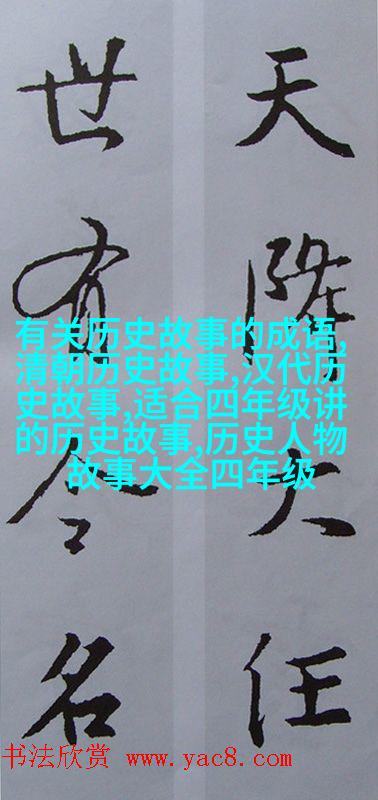 天降大任
世有令名
有关历史故事的成语,
清朝历史故事,汉代历
史故事,适合四年级讲
的历史故事,历史人物
故事大全四年级
书法欣赏 www.yac8.com